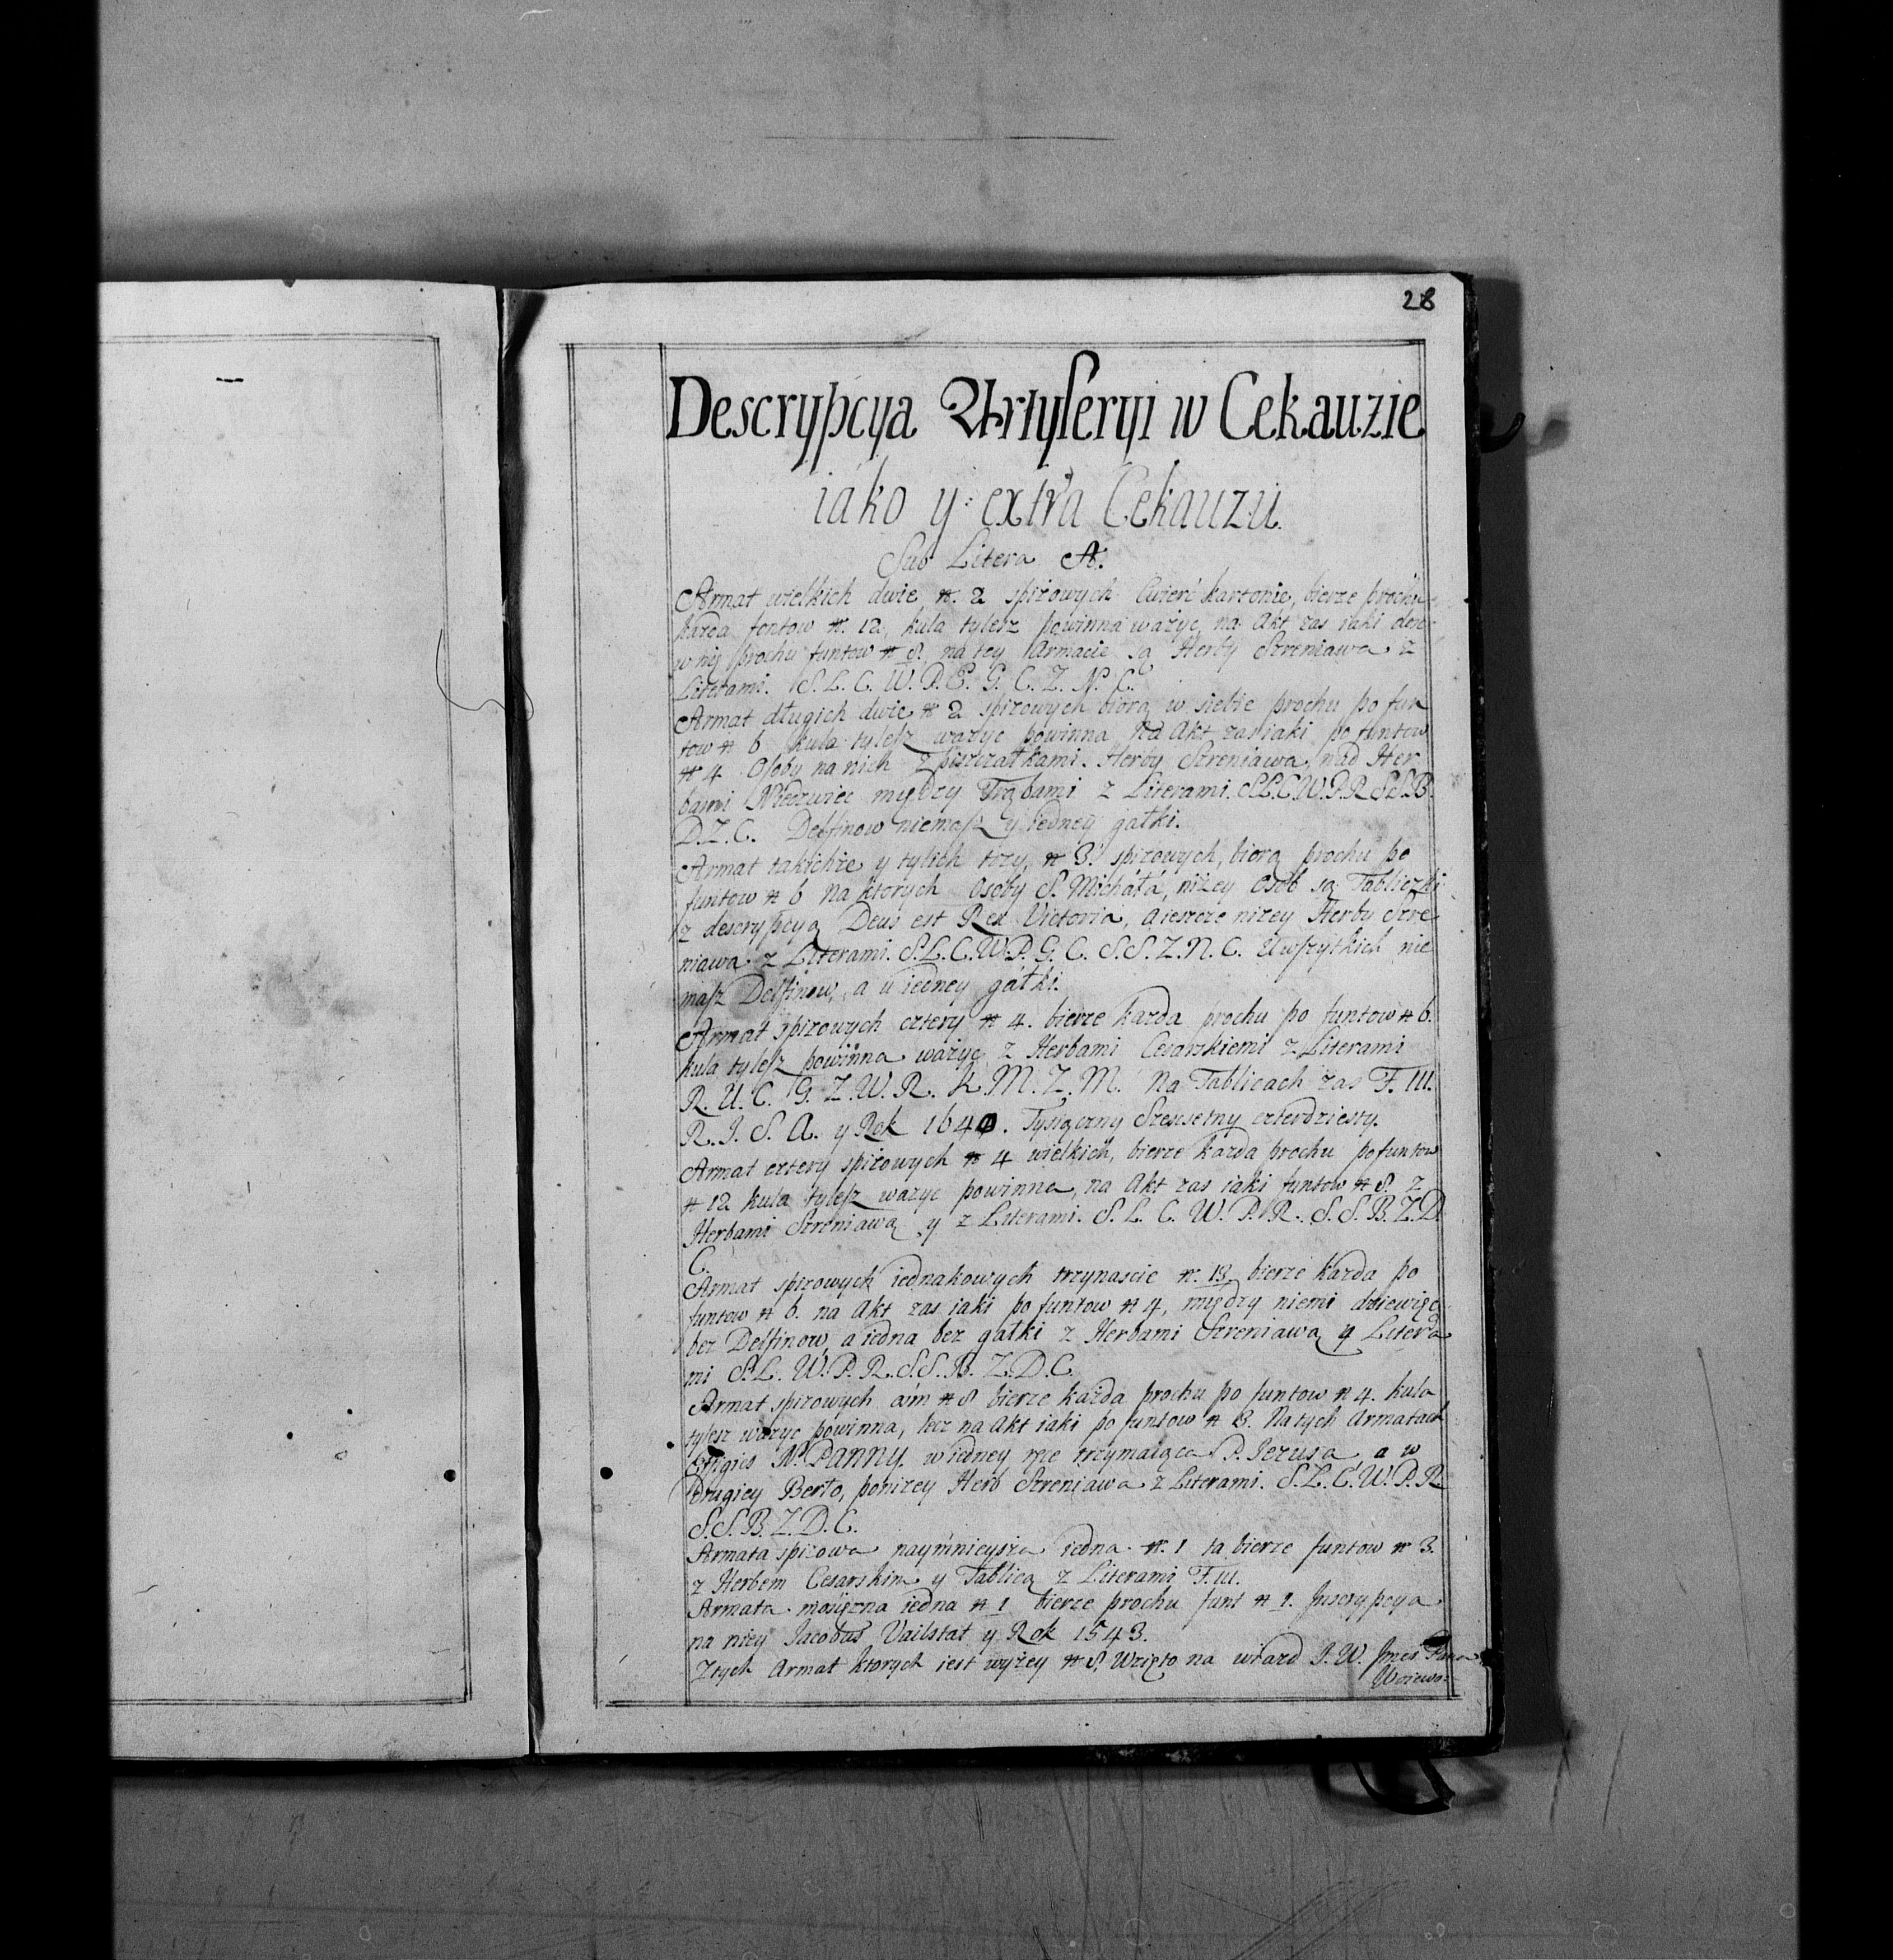 28
Descrypcya Artyleryi w Cekauzie
iako y extra Cekauzu.
Sub Litera A.
Armat wielkich dwie #. 2 spiżowych cwierć kartonie, bierze prochu
każda fontow #. 12, kula tylesz powinna ważyc, na Akt zas iaki
w nię prochu funtow # 8. na tey Armacie są Herby Szreniawa z
Literami. S. L. C. W. P. E. G. C. Z. N. C.
Armat długich dwie # 2 spizowych biorą w siebie prochu po fun
tow # 6 kula tylesz wazyc powinna na Akt zas iaki po funtow
# 4 Osoby na nich z piszczałkami. Herby Szreniawa, nad Her
bami Niedzwiec między Trąbami z Literami. S.L.C.W.P.R S.S.B.
D.Z.C. Delfinow niemasz y iedney gałki.
Armat takichże y tylich trzy, # 3. spizowych, biorą prochu po
funtow # 6 na ktorych Osoby S. Michała, niżey Osob są Tabliczki
z descrypcyą Deus est Rex Victoria, a ieszcze nizey Herby Szre
niawa z Literami. S.L.C.W.P. G. C. S.S.Z.N.C. U wszytkich nie
masz Delfinow, a u iedney gałki.
Armat spizowych cztery # 4. bierze kazda prochu po funtow # 6.
kula tylesz powinna ważyc z Herbami Cesarskiemi z Literami
R. U. C. G. Z. W. R. K. M. Z. M. Na Tablicach zas F. III.
R. I. S. A. y Rok 1640. Tysiączny Szescsetny czterdziesty.
Armat cztery spiżowych # 4 wielkich, bierze kazda prochu po funtow
# 12 kula tylesz wazyc powinna, na Akt zas iaki funtow # 8. z
Herbami Szreniawą y z Literami. S. L. C. W. P. R. S. S. B. Z. D.
C.
Armat spizowych iednakowych trzynascie #. 13 bierze każda po
funtow # 6. na Akt zas iaki po funtow # 4, między niemi dziewięc
bez Delfinow, a iedna bez gałki z Herbami Szreniawą y Litera
mi S.L. W.P.R.S.S.B. Z.D.C.
Armat spizowych # 8 bierze każda prochu po funtow # 4. kula
tylesz wazyc powinna, lecz na Akt iaki po funtow # 3. Na tych Armatach
Effigies N. PANNY. w iedney ręce trzymaiąca P. Jezusa, a w
drugiey Berło, ponizey Herb Szreniawa z Literami. S.L.C.W.P.R
S.S.B.Z.D.C.
Armata spizowa naymnieysza iedna #. 1 ta bierze funtow # 3.
z Herbem Cesarskim y Tablicą z Literami F. III.
Armata mosięzna iedna # 1 bierze prochu funt # 1. Inscrypcya
na niey Jacobus Vailstat y Rok 1543.
Z tych Armat ktorych jest wyżey # 8. Wzięto na wiazd J. W. Jmci Pana
Woiewo=